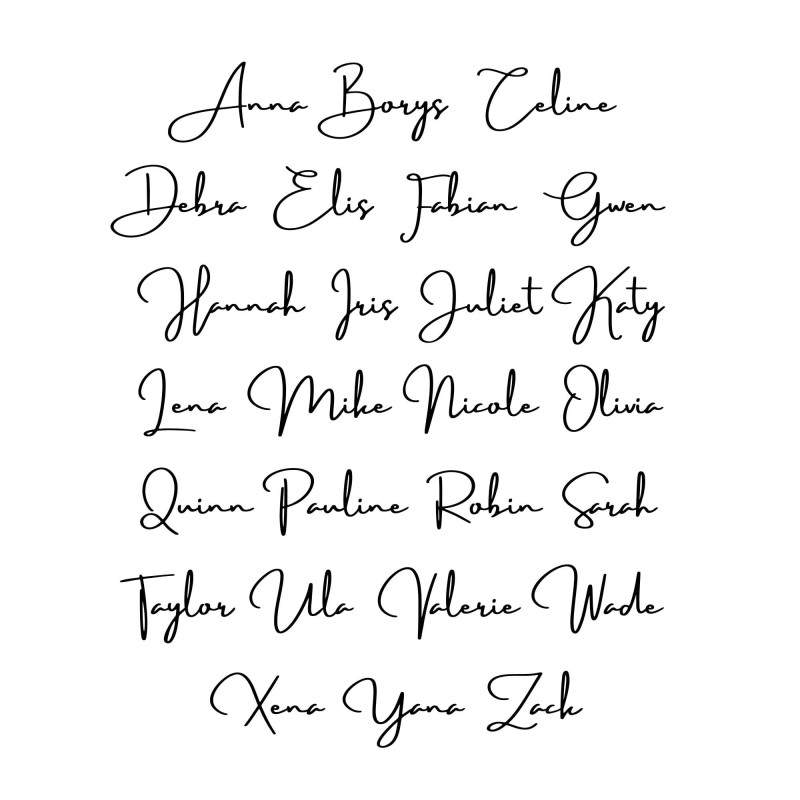 Anna Borys Celine
Debra Elis Fabian Gwen
Hannah Iris Juliet Katy
Lena Mike Nicole Olivia
Quinn Pauline Robin Sarah
Taylor Ula Valerie Wade
Xena Yana Zack